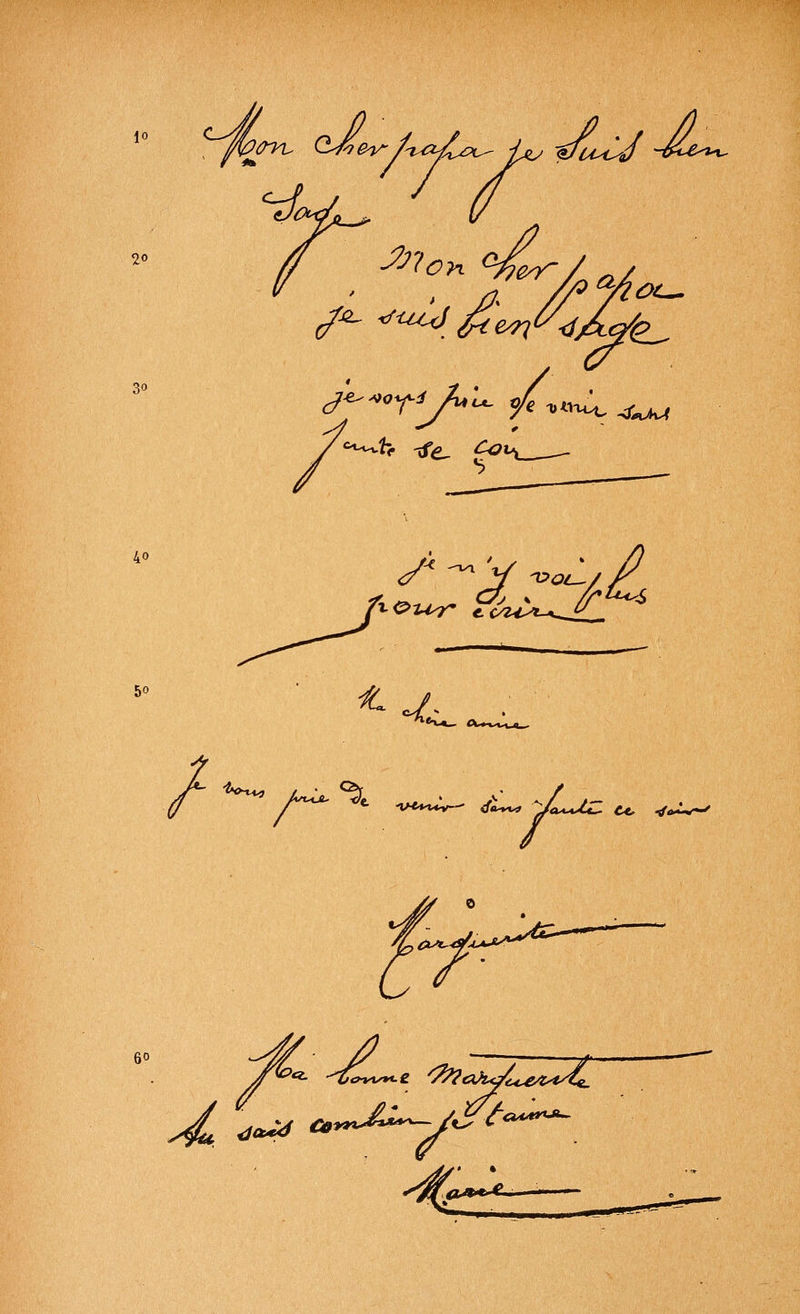 1º Mon cher papa je suis bien
sage
2º Mon cher papa
je suis bien sage
3º je vous prie de venir sans
faute se çoir
4º je n'y vois plus
pour écrire
5º Ma chère amie
Je vous prie de venir sans faute ce soir
Marguerite
6º Ma bonne Marguerite
tu sais combien je t'aime
Marie